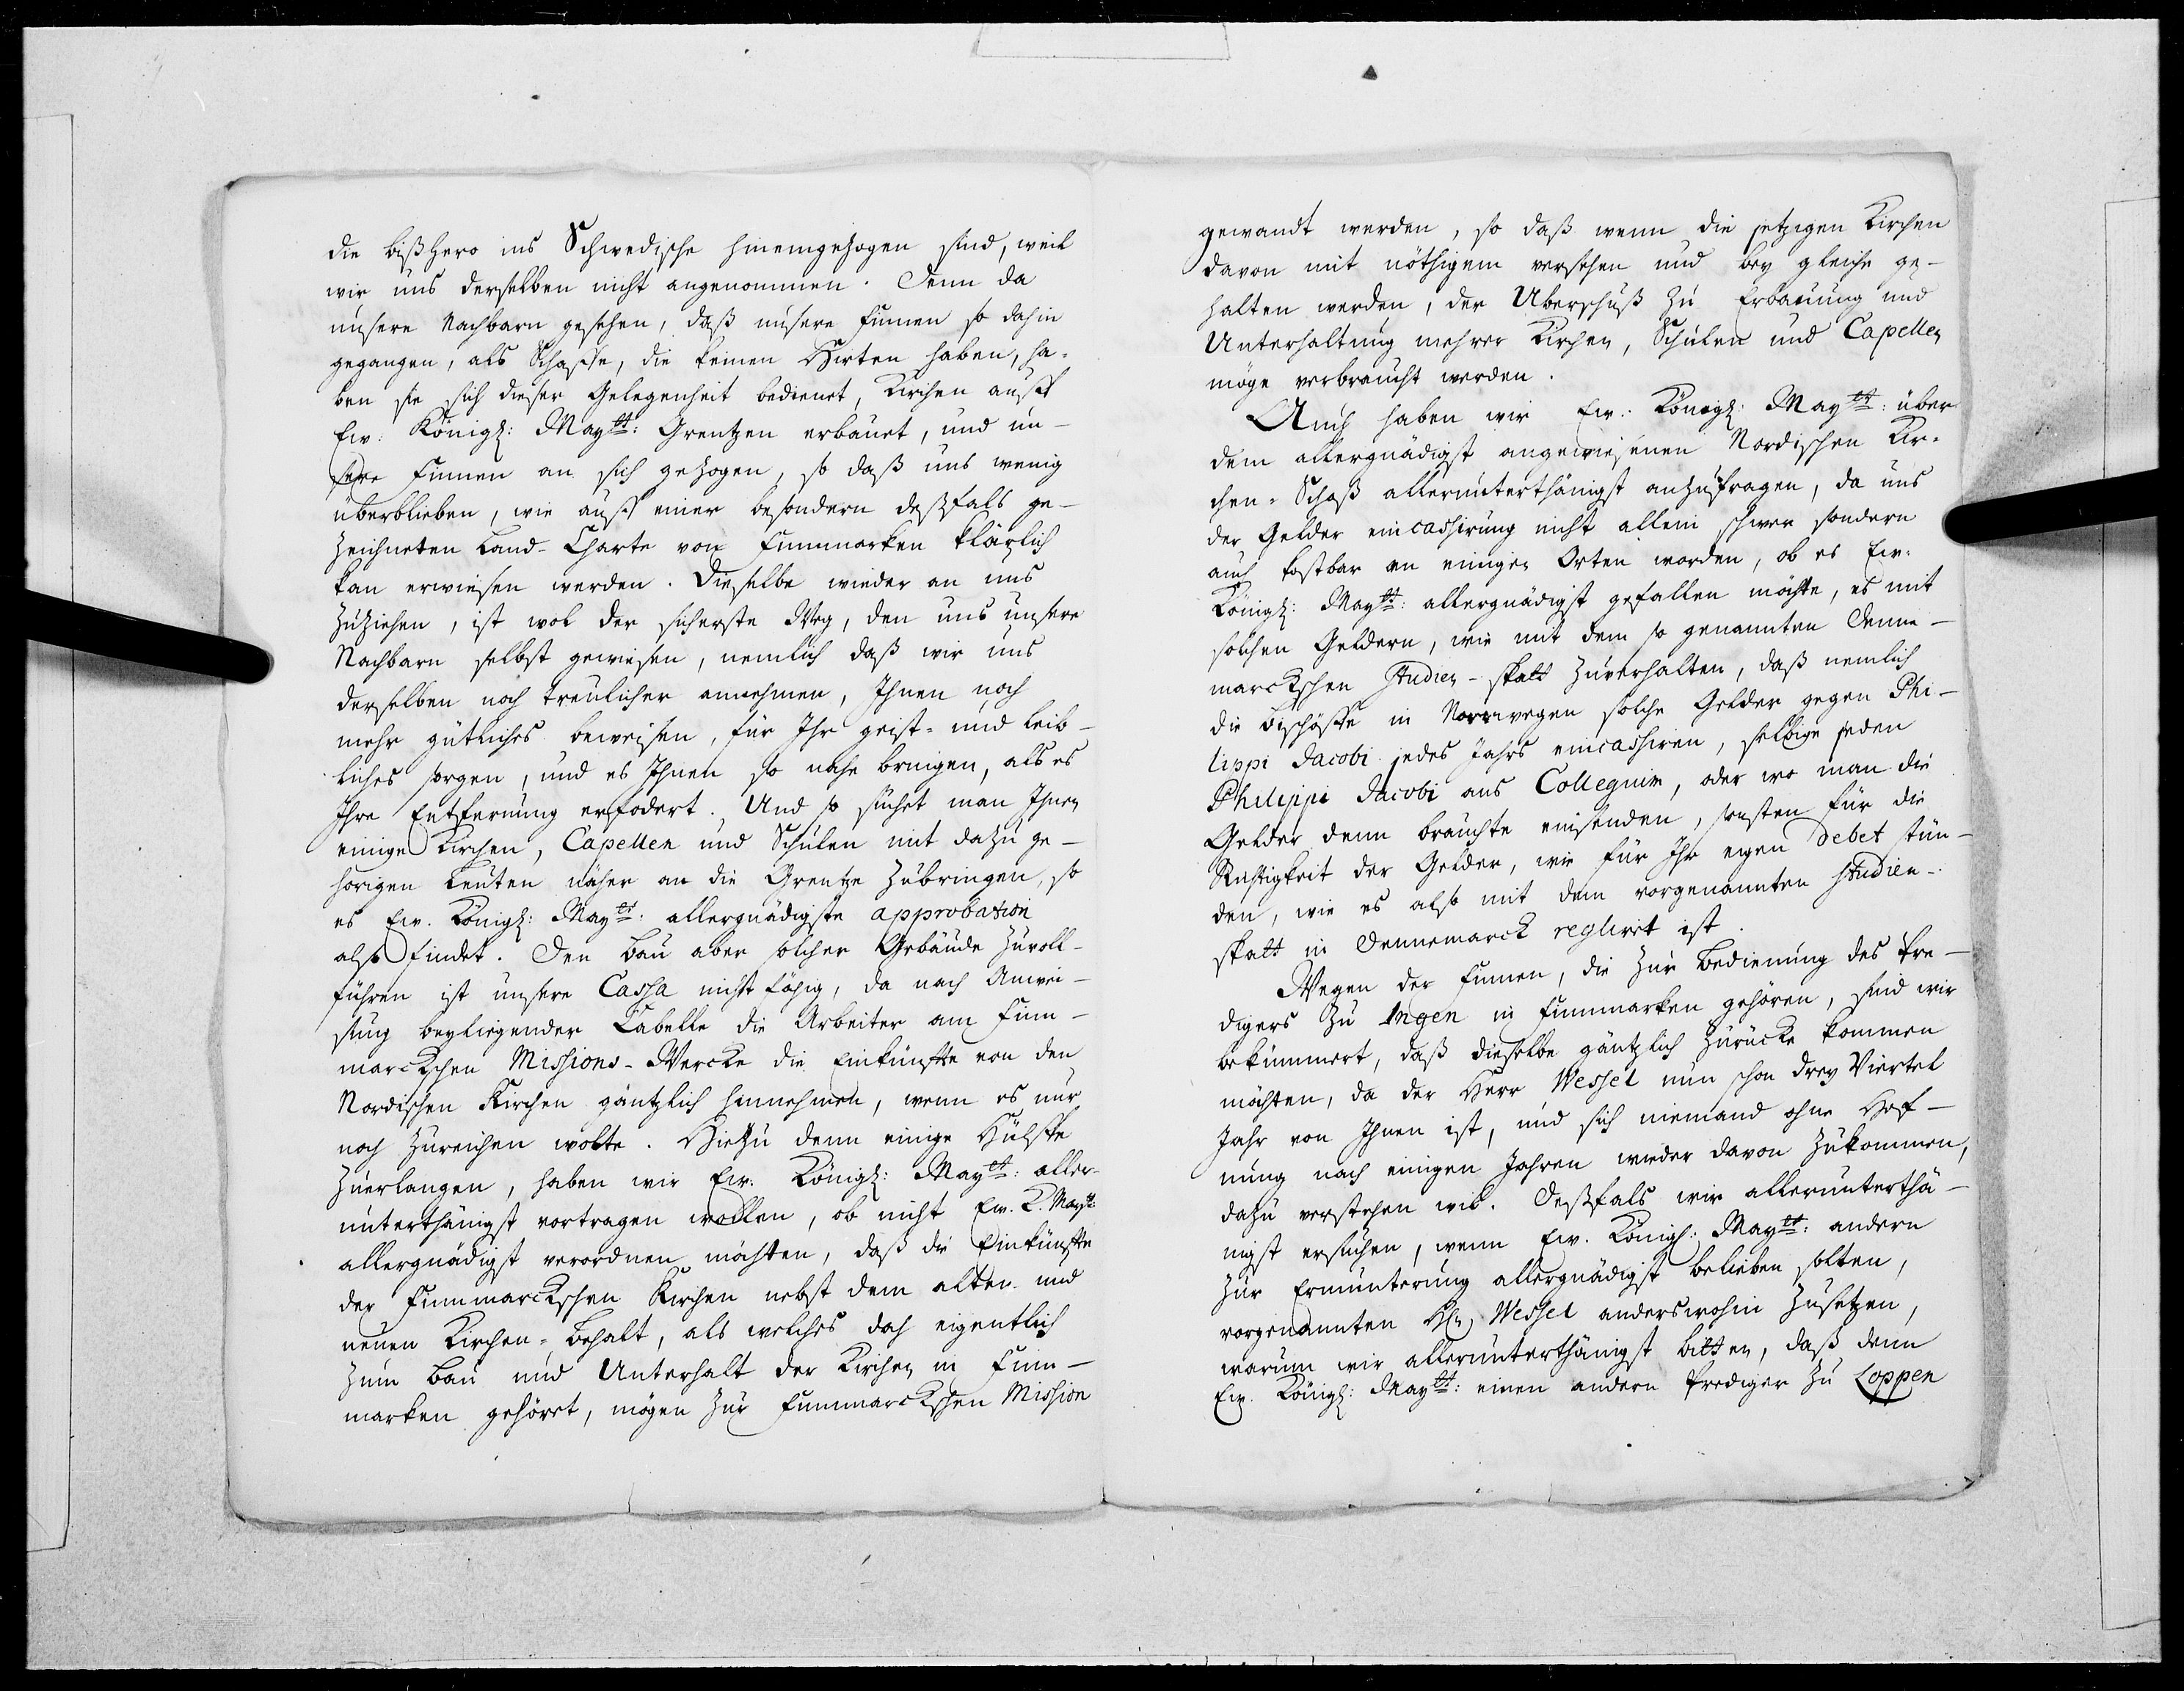 die bißhero ins Schwedische hineingezogen sind, weil
wir uns derselben nicht angenommen. Denn da
unsere Nachbarn gesehen, daß unsere Finnen so dahin
gegangen, als Schaffe, die keinen Hirten haben, ha-
ben sie sich dieser Gelegenheit bedienet, Kirchen auff
Ew: Königl: Maytt: Grentzen erbauet, und un-
sere Finnen an sich gezogen, so daß uns wenig
überblieben, wie auß einer besondern deßfals ge-
zeichneten Land-Charte von Finnmarken klärlich
kan erwiesen werden. Dieselbe wieder an uns
zuziehen, ist wol der sicherste Weg, den uns unsere
Nachbarn selbst gewiesen, nemlich daß wir uns
derselben noch treulicher annehmen, Ihnen noch
mehr gütliches beweisen, für Ihr geist- und leib-
liches sorgen, und es Ihnen so nahe bringen, als es
Ihre Entfernung erfodert. Und so suchet man Ihnen
einige Kirchen, Capellen und Schulen mit dazu ge-
hörigen Leuten näher an die Grentze zubringen, so
es Ew. Königl: Maytt: allergnädigste approbation
also findet. Den Bau aber solcher Gebäude zuvoll-
führen ist unsere Cassa nicht fähig, da nach Anwei-
sung beyliegender Tabelle die Arbeiter am Finn-
marckschen Missions-Wercke die Einkünfte von den
Nordischen Kirchen gäntzlich hinnehmen, wenn es nur
noch zureichen wolte. Hiezu denn einige Hülffe
zuerlangen, haben wir Ew. Königl: Maytt: aller-
unterthänigst vortragen wollen, ob nicht Ew. K. Maytt
allergnädigst verordnen möchten, daß die Einkünfte
der Finnmarckschen Kirchen nebst dem alten und
neuen Kirchen-Behalt, als welches doch eigentlich
zum Bau und Unterhalt der Kirchen in Finn-
marken gehöret, mögen zur Finnmarckschen Mission
gewandt werden, so daß wenn die jetzigen Kirchen
davon mit nöthigem versehen und bey gleiche ge-
halten werden, der Uberschuß zu Erbauung und
Unterhaltung mehrer Kirchen, Schulen und Capellen
möge verbraucht werden.
Auch haben wir Ew: Königl: Maytt: über
dem allergnädigst angewiesenen Nordischen Kir-
chen-Schoß allerunterthänigst anzufragen, da uns
der Gelder eincassirung nicht allein schwer sondern
auch kostbar an einigen Orten worden, ob es Ew.
Königl: Maytt: allergnädigst gefallen möchte, es mit
solchen Geldern, wie mit dem so genannten Denne-
marckschen Studien-skatt zuverhalten, daß nemlich
die Bischöffe in Norwegen solche Gelder gegen Phi-
lippi Jacobi jedes Jahrs eincassiren, selbige jeden
Philippi Jacobi ans Collegium, oder wo man die
Gelder denn brauchte einsenden, sonsten für die
Richtigkeit der Gelder, wie für Ihr eigen debet stün-
den, wie es also mit dem vorgenannten studien-
skatt in Dennemarck reglirct ist.
Wegen der Finnen, die zur Bedienung des Pre-
digers zu Ingen in Finnmarken gehören, sind wir
bekümmert, daß dieselbe gäntzlich zurücke kommen
möchten, da der Herr Wessel nun schon drey Viertel
Jahr von Ihnen ist, und sich niemand ohne Hof-
nung nach einigen Jahren wieder davon zukommen,
dazu verstehen wil. Deßfals wir allerunterthä-
nigst ersuchen, wenn Ew. Königl: Maytt: andern
zur Ermunterung allergnädigst belieben solten,
vorgenannten Hn Wessel anderswohin zusetzen,
warum wir allerunterthänigst bitten, daß denn
Ew. Königl: Maytt: einen andern Prediger zu Loppen